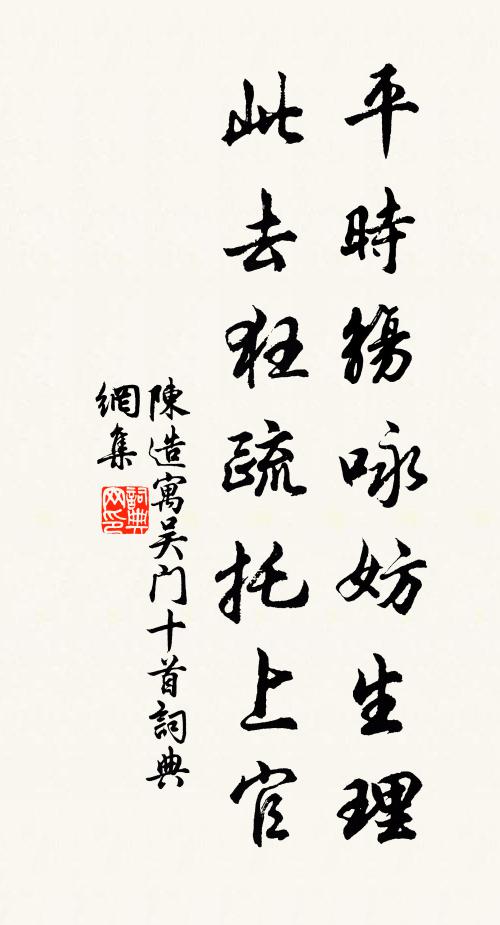 平時觴咏妨生理
此去狂疏托上官
陳造寓吴门十首詞典
網集
詞典
网印